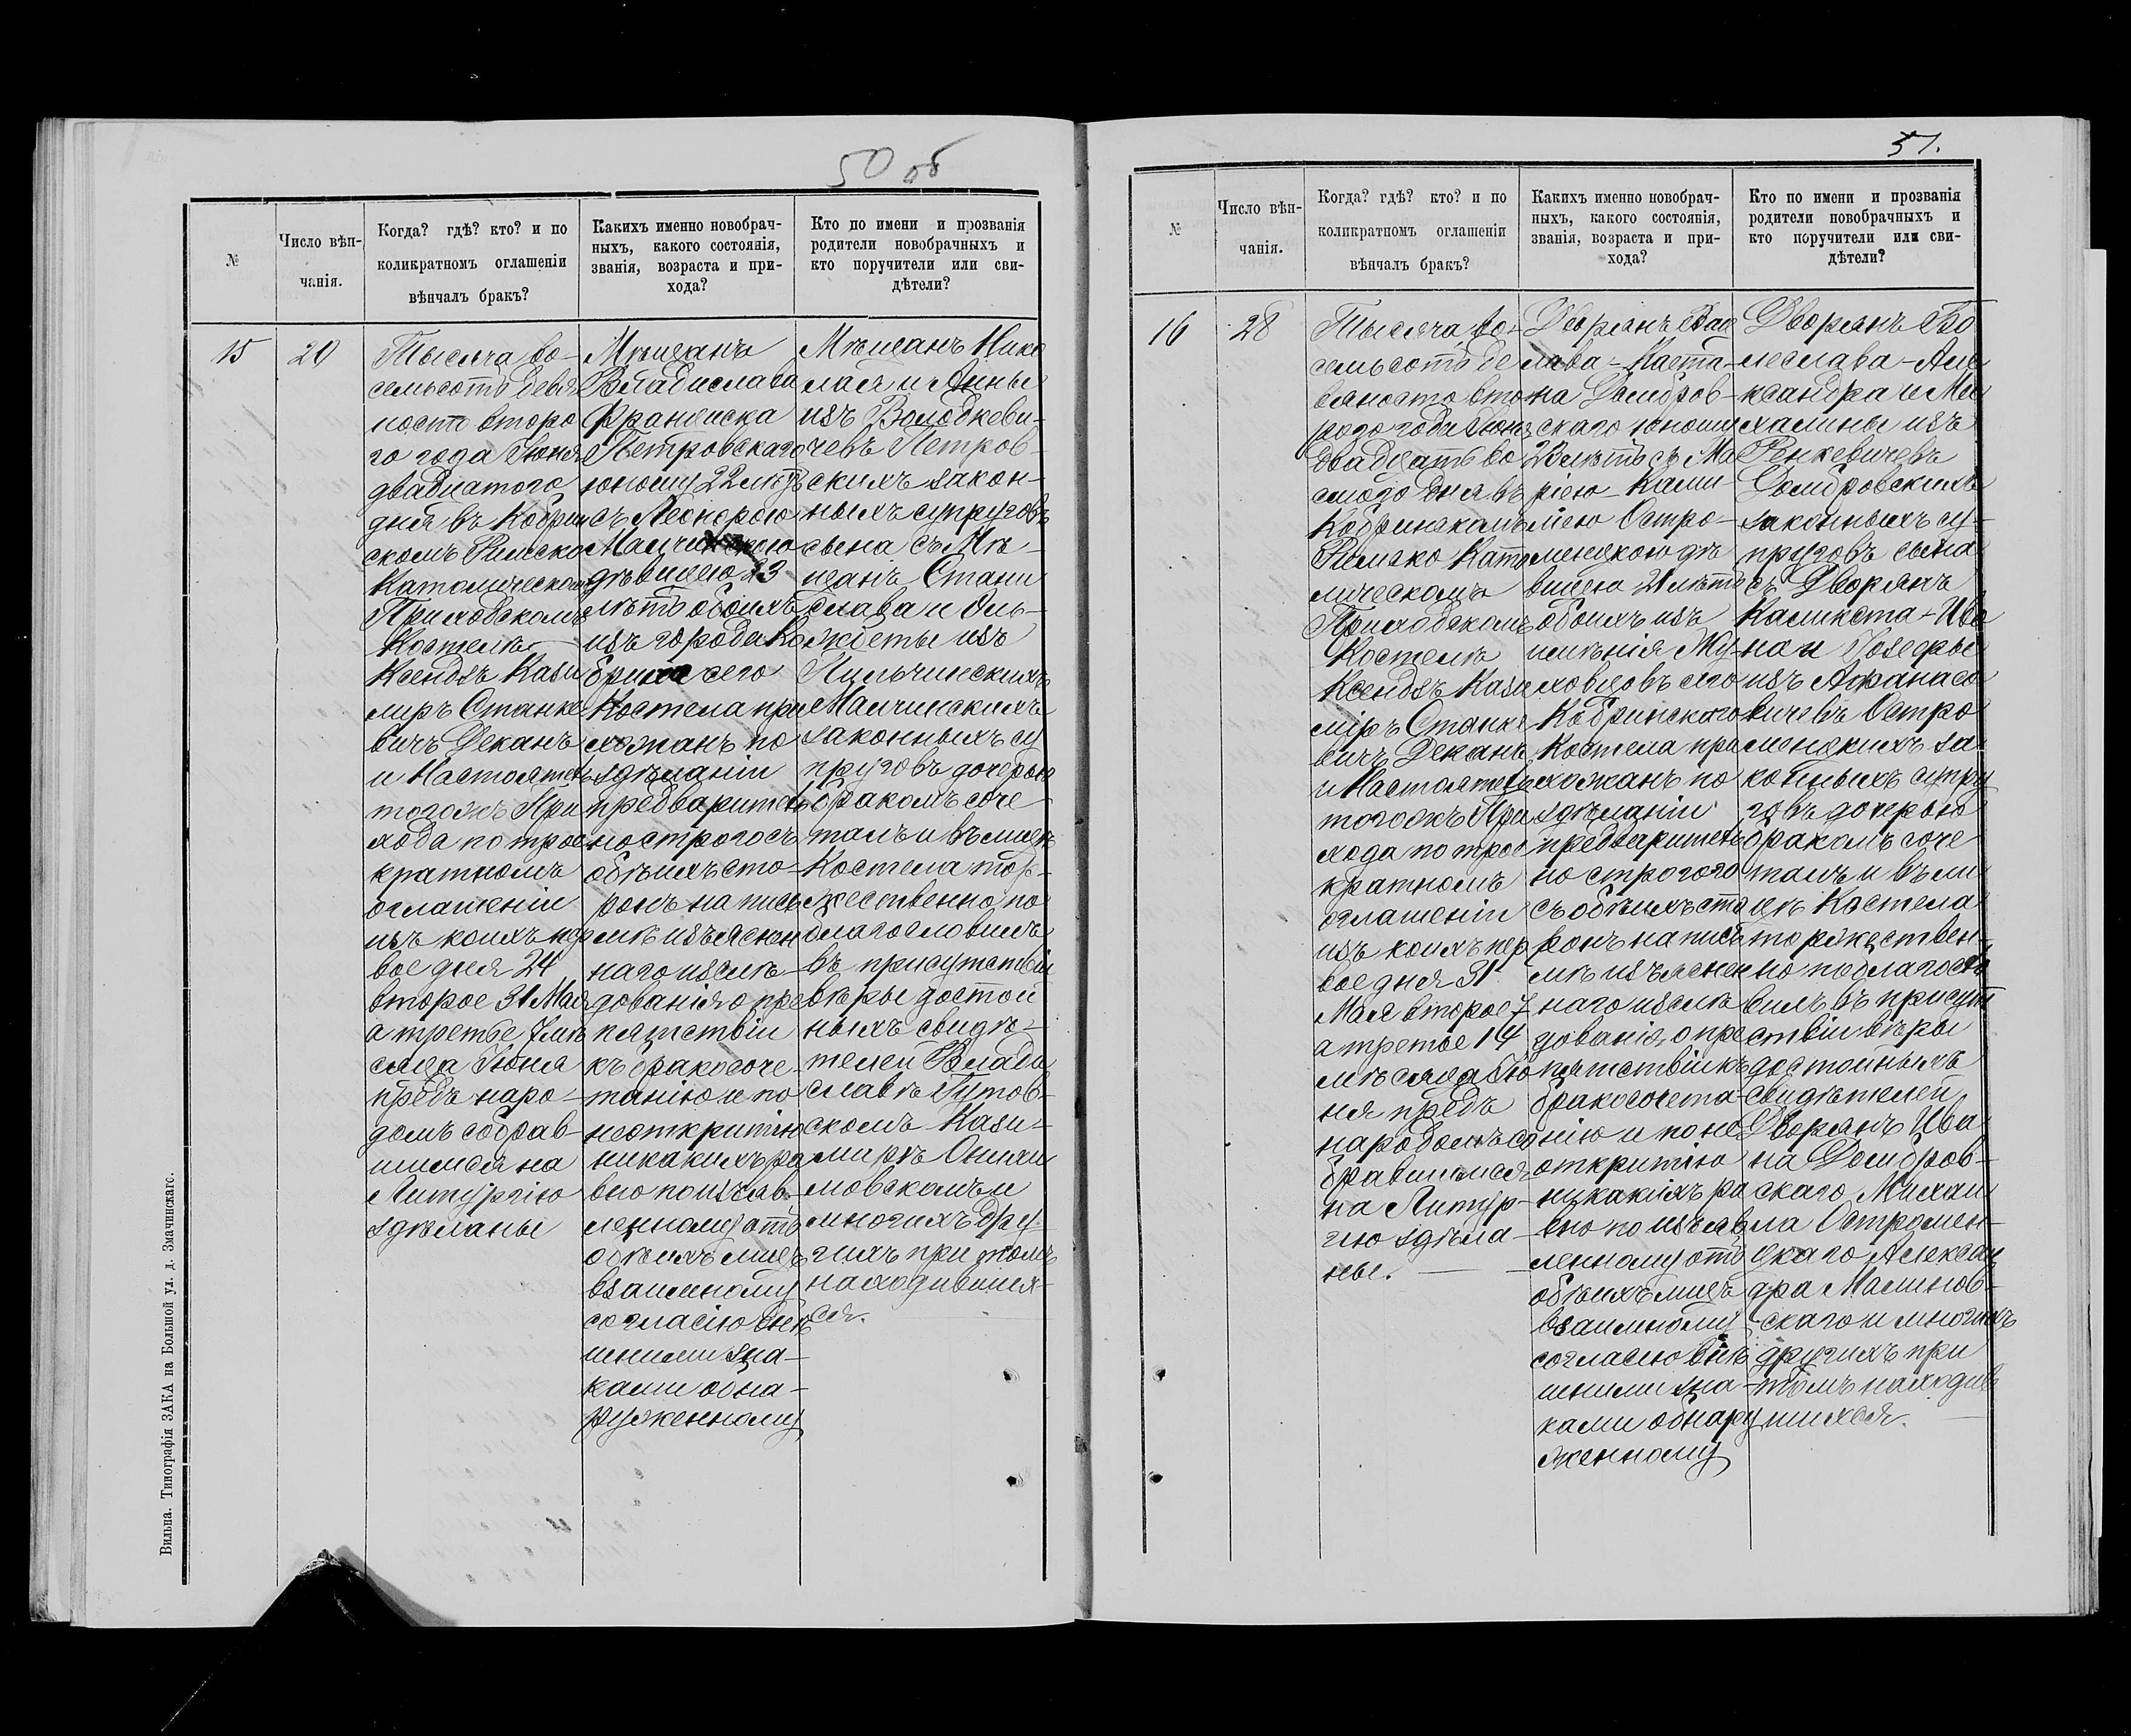 50 об
№
Число вѣн-
чанія.
Когда? гдѣ? кто? и по
коликратномъ оглашеніи
вѣнчалъ бракъ?
Какихъ именно новобрач-
ныхъ, какого состоянія,
званія, возраста и при-
хода?
Кто по имени и прозванія
родители новобрачныхъ и
кто поручители или сви-
дѣтели?
15
20
Тысяча во-
семьсотъ девя
носто второ
го года Іюня
двадцатого
дня въ Кобрин
скомъ Римско
Католическомъ
Приходскомъ
Костелѣ
Ксендзъ Кази
миръ Станке
вичъ Деканъ
и Настоятель
тогожъ При
хода по трое
кратномъ
оглашеніи
изъ коихъ пер
вое дня 24
второе 31 Мая
а третье 7 мѣ
сяца Іюня
предъ наро-
домъ собрав-
шимся на
Литургію
здѣланы
Мѣщанъ
Владислава
Франциска
Петровскаго
юношу 22 лѣтъ
съ Леонорою
дѣвицею 23
лѣтъ обоихъ
изъ города Ко
брина сего
Костела при
хожанъ по
здѣланіи
предварителъ
но строгого съ
обѣихъ сто-
ронъ на пись
мѣ изъяснен
наго изслѣ-
дованія о пре
пятствіи
къ бракосоче-
танію и по
неоткритію
никакихъ ра
вно по изъяв-
ленному отъ
обѣихъ лицъ
взаимному
согласію внѣ
шними зна-
ками обна-
руженному
Мѣщанъ Нико
лая и Анны
изъ Володкеви-
чевъ Петров-
скихъ закон-
ныхъ супруговъ
сына съ Мѣ-
щанъ Стани
слава и Эль-
жбеты изъ
Пильчинскихъ
Малчинскихъ
законныхъ су
пруговъ дочерью
бракомъ соче
талъ и въ лицѣ
Костела тор-
жественно по
благословилъ
въ присутствіи
вѣры достой
ныхъ свидѣ-
телей Влади
славѣ Гутов-
скомъ Кази-
мирѣ
мовскомъ и
многихъ дру-
гихъ при томъ
находившия-
ся.
Вильна. Типографія ЗАКА на Большой ул. д. Змачинскаго.
51.
№
Число вѣн-
чанія.
Когда? гдѣ? кто? и по
коликратномъ оглашеніи
вѣнчалъ бракъ?
Какихъ именно новобрач-
ныхъ, какого состоянія,
званія, возраста и при-
хода?
Кто по имени и прозванія
родители новобрачныхъ и
кто поручители или сви-
дѣтели?
16
28
Тысяча во-
семьсотъ де
вяносто вто
рого года Іюня
двадцать во
смого дня въ
Кобринскомъ
Римско Като
лическомъ
Приходскомъ
Костелѣ
Ксендзъ Кази
міръ Станке
вичъ Деканъ
и Настоятель
тогожъ При
хода по трое
кратномъ
оглашеніи
изъ коихъ пер
вое дня 31
Мая второе 7
а третье 14
мѣсяца Ію
ня предъ
народомъ со
бравшимся
на Литур-
гію здѣла-
ны.
Дворянъ Вац
лава-Каета-
на Домбров-
скаго юношу
28 лѣтъ съ Ма
ріею-Ками-
ліею Остро-
менцкою дѣ
вицею 21 лѣтъ
обоихъ изъ
имѣнія Му-
ховцовъ сего
Кобринскаго
Костела при
хожанъ по
здѣланіи
предварителъ
но строгого
съ обѣихъ сто
ронъ на пись
мѣ изъяснен
наго изслѣ
дованія о пре
пятствіи къ
бракосочета-
нію и по не
откритію
никакихъ ра
вно по изъяв
ленному отъ
обѣихъ лицъ
взаимному
согласію внѣ
шними зна-
ками обнару
женному
Дворянъ Бо
леслава-Але
ксандра и Ми
халины изъ
Рынкевичевъ
Домбровскихъ
законныхъ су-
пруговъ сына
съ Дворянъ
Каликста-Ива
на и Іозефы
изъ Афанасо
вичевъ Остро
менцкихъ за-
конныхъ супру
говъ дочерью
бракомъ соче
талъ и въ ли
цѣ Костела
торжествен-
но поблагосло
вилъ въ присут
ствіи вѣры
достойныхъ
свидѣтелей
Дворянъ Ива
на Домбров-
скаго Михаи
ла Остромен-
цкаго Алексан
дра Малинов-
скаго и многихъ
другихъ при
томъ находив
шихся.